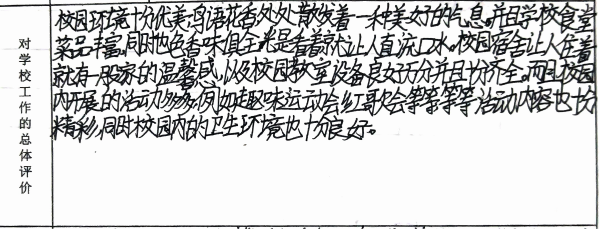 对学校工作的总体评价
校园环境十分优美,鸟语花香处处散发着一种美好的气息。并且学校食堂
菜品丰富,同时也色香味俱全,光是看着就让人直流口水。校园宿舍让人住着
就有一股家的温馨感,以及校园教室设备良好万分并且十分齐全。而且校园
内开展的活动多多,例如趣味运动会,红歌会等等等等活动内容也十分
精彩,同时校园内的卫生环境也十分良好。